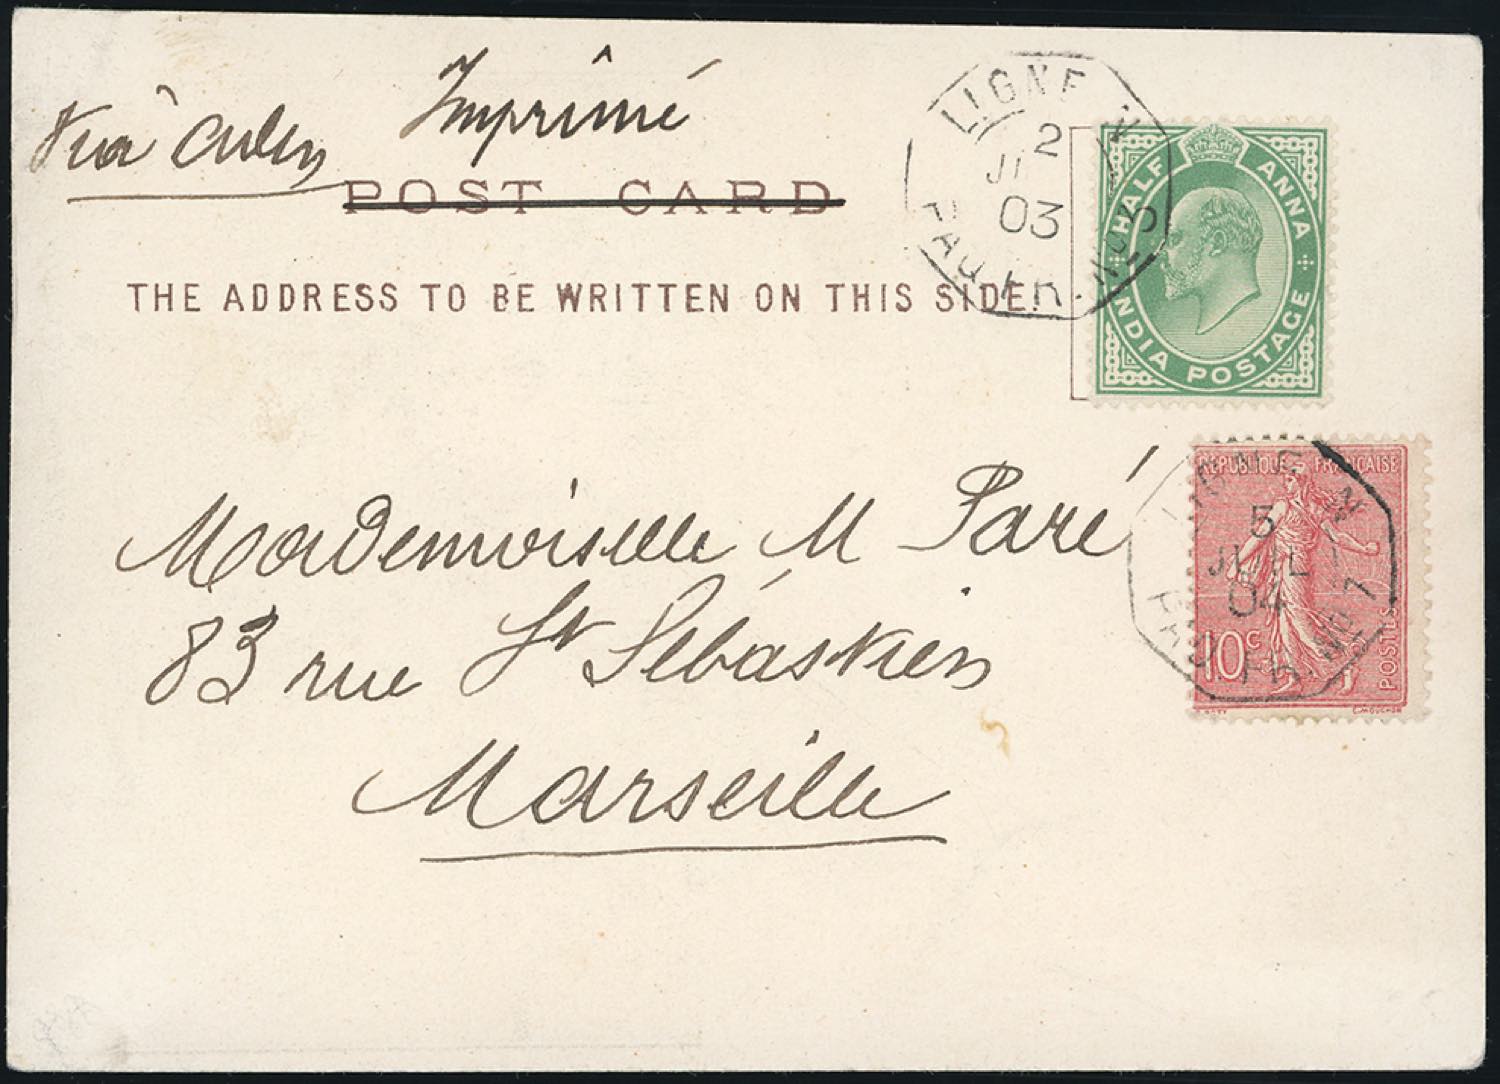 Via Aden
Imprimé
POST CARD
THE ADDRESS TO BE WRITTEN ON THIS SIDE.
LIGNE N
2
03
PAQ. FR. No 5
HALF ANNA
INDIA POSTAGE
Mademoiselle M Paré
83 rue St Sébastien
Marseille
REPUBLIQUE FRANÇAISE
10c
POSTES
LIGNE N
5
JUIL
04
PAQ. FR. No 7
E. MOUCHON